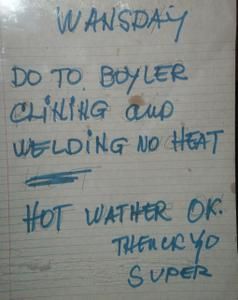 WANSDAY
DO TO BOYLER
CLINING and
WELDING NO HEAT
HOT WATHER OK.
THENCK YO
SUPER